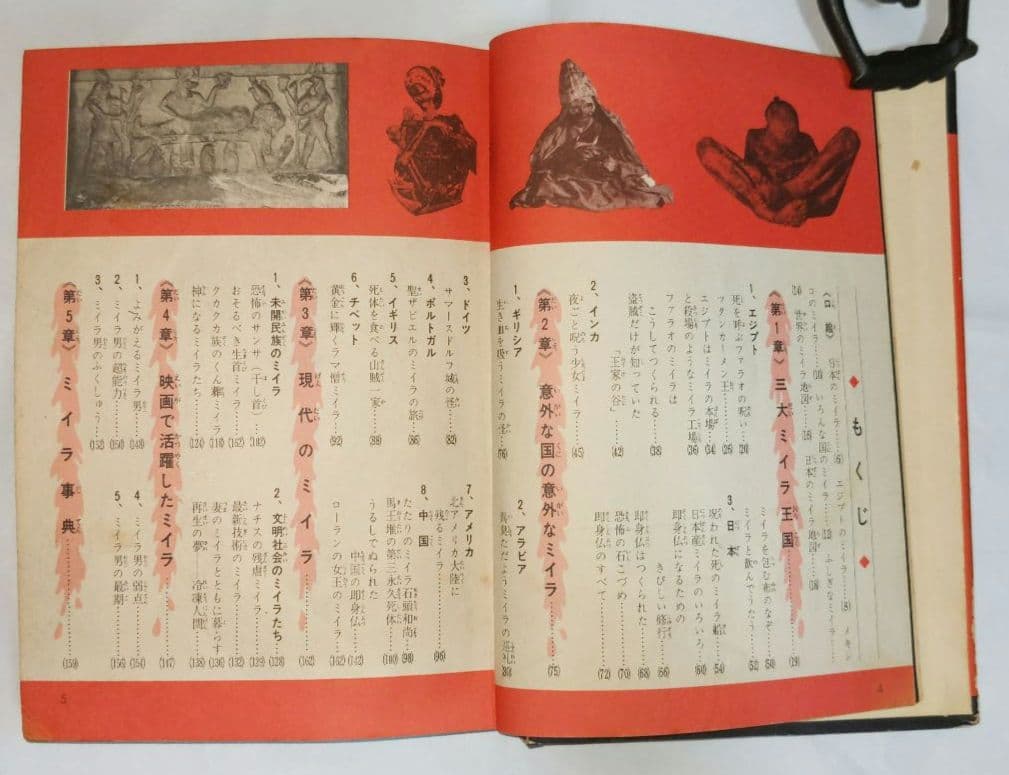 ◆もくじ◆
〈口絵〉日本のミイラ……(6) エジプトのミイラ……(8) メキシコのミイラ……(10) いろんな国のミイラ……(12) ふしぎなミイラ……(14)
世界のミイラ地図……(16) 日本のミイラ地図……(18)
《第1章》三大ミイラ王国……(19)
1、エジプト
死を呼ぶファラオの呪い……(20)
ツタンカーメン王……(26)
エジプトはミイラの本場……(34)
と殺場のようなミイラ工場……(36)
ファラオのミイラは
こうしてつくられる……(38)
盗賊だけが知っていた
「王家の谷」……(42)
2、インカ
夜ごと呪う少女ミイラ……(45)
ミイラを包む船のなぞ……(50)
ミイラと飲んでうたう……(52)
3、日本
呪われた死のミイラ船……(54)
日本産ミイラのいろいろ……(60)
即身仏になるための
きびしい修行……(66)
即身仏はつくられた……(68)
恐怖の石こづめ……(70)
即身仏のすべて……(72)
《第2章》意外な国の意外なミイラ……(75)
1、ギリシア
生き血を吸うミイラの怪……(76)
2、アラビア
異臭ただようミイラの巡礼……(80)
3、ドイツ
サマースドルフ城の怪……(82)
4、ポルトガル
聖ザビエルのミイラの旅……(86)
5、イギリス
死体を食べる山賊一家……(88)
6、チベット
黄金に輝くラマ僧ミイラ……(92)
7、アメリカ
北アメリカ大陸に
残るミイラ……(96)
8、中国
たたりのミイラ石頭和尚……(98)
馬王堆の第三永久死体……(100)
うるしでぬられた
中国の即身仏……(142)
ローランの女王のミイラ……(162)
《第3章》現代のミイラ……(162)
1、未開民族のミイラ
恐怖のサンサ(干し首)……(102)
おそるべき生首ミイラ……(162)
クカクカ族のくん製ミイラ……(118)
神になるミイラたち……(124)
2、文明社会のミイラたち……(128)
ナチスの残虐ミイラ……(129)
最新技術のミイラ……(132)
妻のミイラとともに暮らす……(136)
再生の夢 冷凍人間……(138)
《第4章》映画で活躍したミイラ……(147)
1、よみがえるミイラ男……(148)
2、ミイラ男の超能力……(150)
3、ミイラ男のふくしゅう……(152)
4、ミイラ男の弱点……(154)
5、ミイラ男の最期……(156)
《第5章》ミイラ事典……(159)
4
5